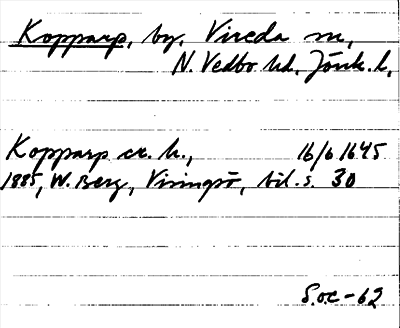 Kopparp, by. Vireda sn,
N. Vedbo hd, Jönk. l,
Kopparp cr. h., 16/6 1645
1885, W. Berg, Visingsö, bil. s. 30
S.o.c-62